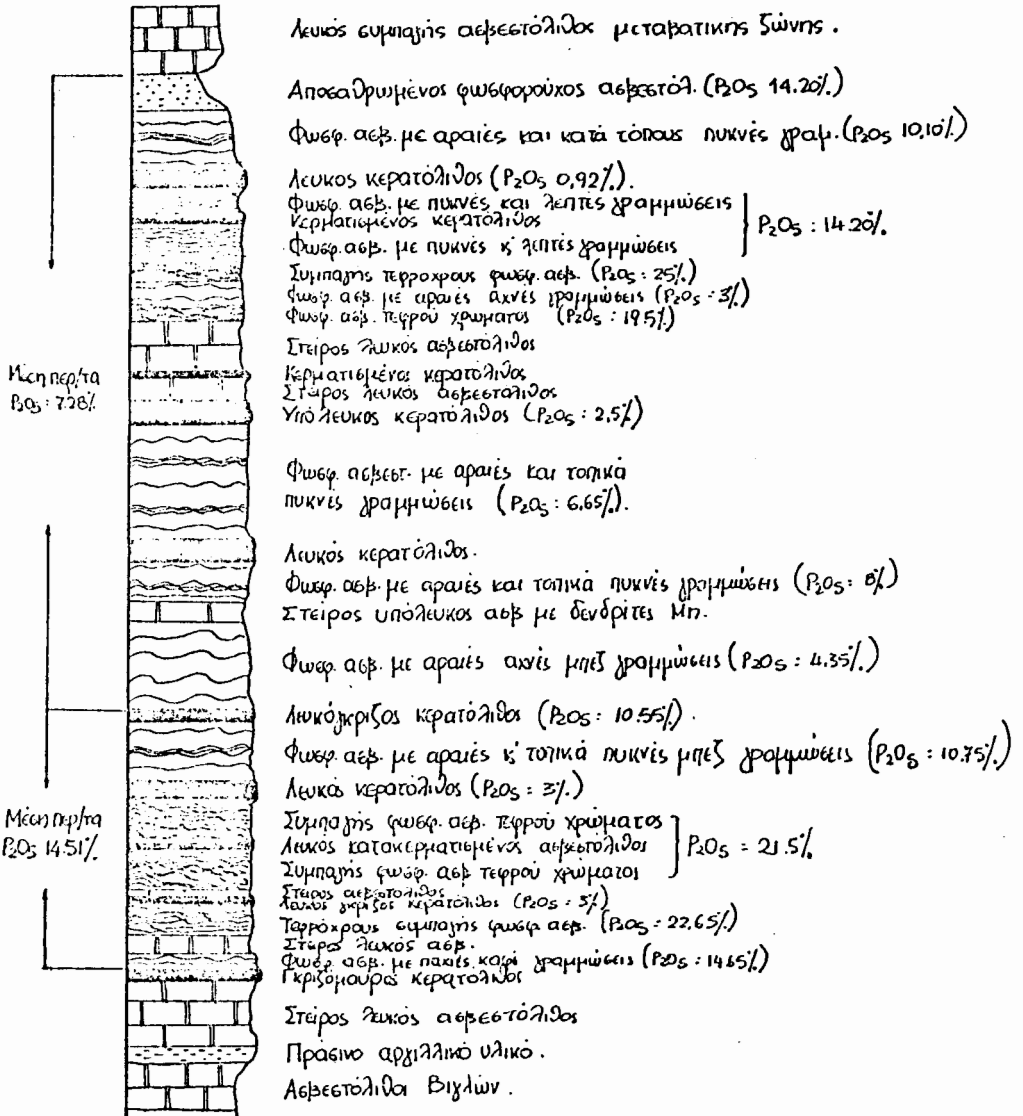 Λευκός συμπαγής ασβεστόλιθος μεταβατικής ζώνης.
Αποσαθρωμένος φωσφορούχος ασβεστόλ. (P₂O₅ 14.20%)
Φωσφ. ασβ. με αραιές και κατά τόπους πυκνές γραμ. (P₂O₅ 10,10%)
Λευκος κερατόλιθος (P₂O₅ 0,92%).
Φωσφ. ασβ. με πυκνές και λεπτές γραμμώσεις
Κερματισμένος κερατόλιθος
Φωσφ. ασβ. με πυκνές κ' λεπτές γραμμώσεις
P₂O₅ : 14.20%
Συμπαγής τεφρόχρους φωσφ. ασβ. (P₂O₅ : 25%)
Φωσφ. ασβ. με αραιές αχνές γραμμώσεις (P₂O₅ : 3%)
Φωσφ. ασβ. τεφρού χρώματος (P₂O₅ : 19.5%)
Στείρος λευκός ασβεστόλιθος
Κερματισμένος κερατόλιθος
Στείρος λευκός ασβεστόλιθος
Υπόλευκος κερατόλιθος (P₂O₅ : 2,5%)
Μέση περ/τα
P₂O₅ : 7.28%
Φωσφ. ασβεστ. με αραιές και τοπικά
πυκνές γραμμώσεις (P₂O₅ : 6,65%).
Λευκός κερατόλιθος.
Φωσφ. ασβ. με αραιές και τοπικά πυκνές γραμμώσεις (P₂O₅ : 8%)
Στείρος υπόλευκος ασβ με δενδρίτες Μn.
Φωσφ. ασβ. με αραιές αχνές μπεζ γραμμώσεις (P₂O₅ : 4.35%)
Λευκόγκριζος κερατόλιθος (P₂O₅ : 10.55%).
Φωσφ. ασβ. με αραιές κ' τοπικά πυκνές μπεζ γραμμώσεις (P₂O₅ : 10.75%)
Λευκός κερατόλιθος (P₂O₅ : 3%.)
Μέση περ/τα
P₂O₅ 14.51%
Συμπαγής φωσφ. ασβ. τεφρού χρώματος
Λευκός κατακερματισμένος ασβεστόλιθος
Συμπαγής φωσφ. ασβ τεφρού χρώματος
P₂O₅ = 21.5%
Στείρος ασβεστόλιθος
Λευκός γκρίζος κερατόλιθος (P₂O₅ : 5%)
Τεφρόχρους συμπαγής φωσφ ασβ. (P₂O₅ : 22,65%)
Στείρος λευκός ασβ.
Φωσφ. ασβ. με παχιές καφέ γραμμώσεις (P₂O₅ : 14.65%)
Γκριζόμαυρος κερατόλιθος
Στείρος λευκός ασβεστόλιθος
Πράσινο αργιλλικό υλικό.
Ασβεστόλιθοι Βιγλών.